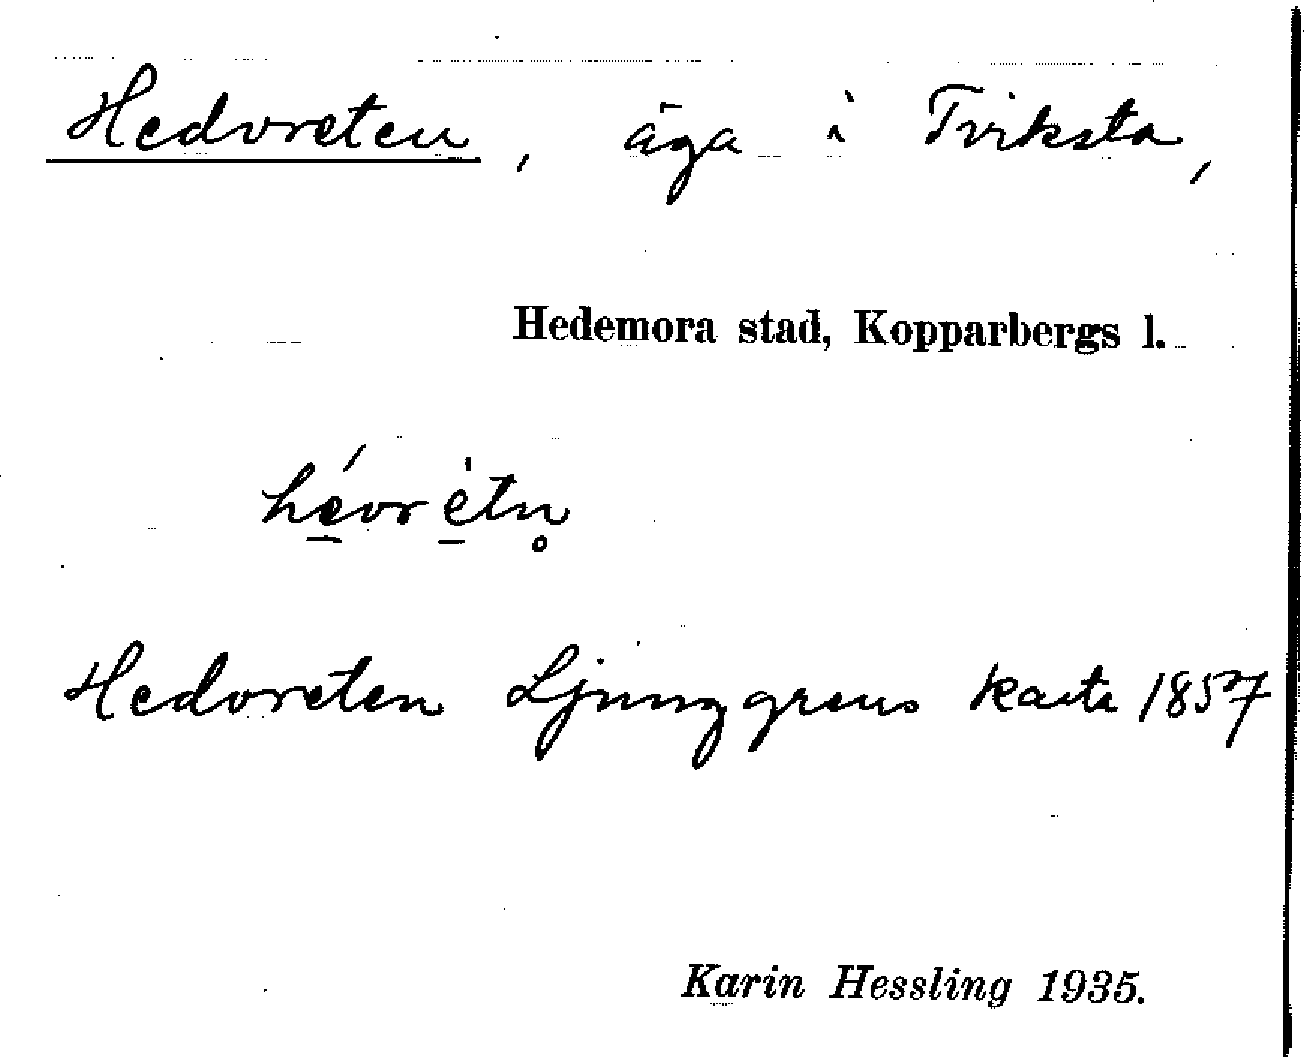 Hedvreten, äga i Tviksta,
Hedemora stad, Kopparbergs l.
hé̱vrè̱tn̥
Hedvreten Ljunggrens karta 1857
Karin Hessling 1935.